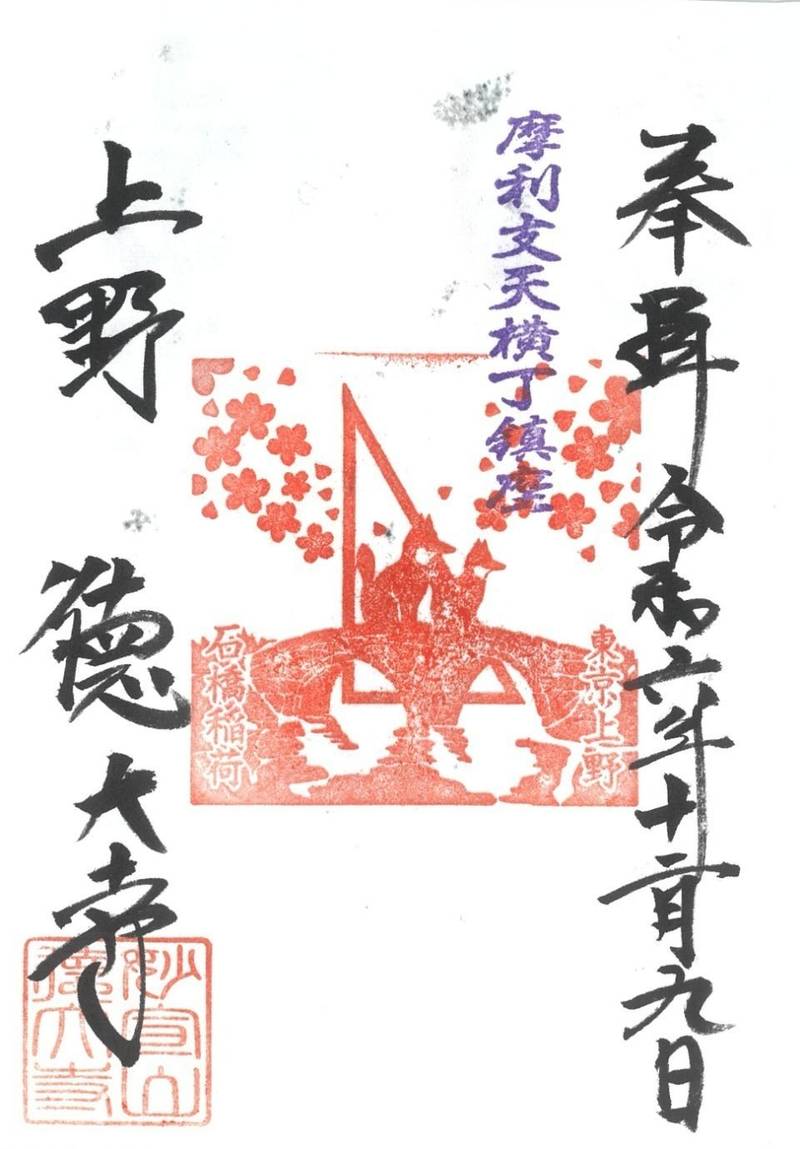 奉拝 令和六年十二月九日
摩利支天横丁鎮座
東京上野
石橋稲荷
上野 徳大寺
妙宣山
徳大寺